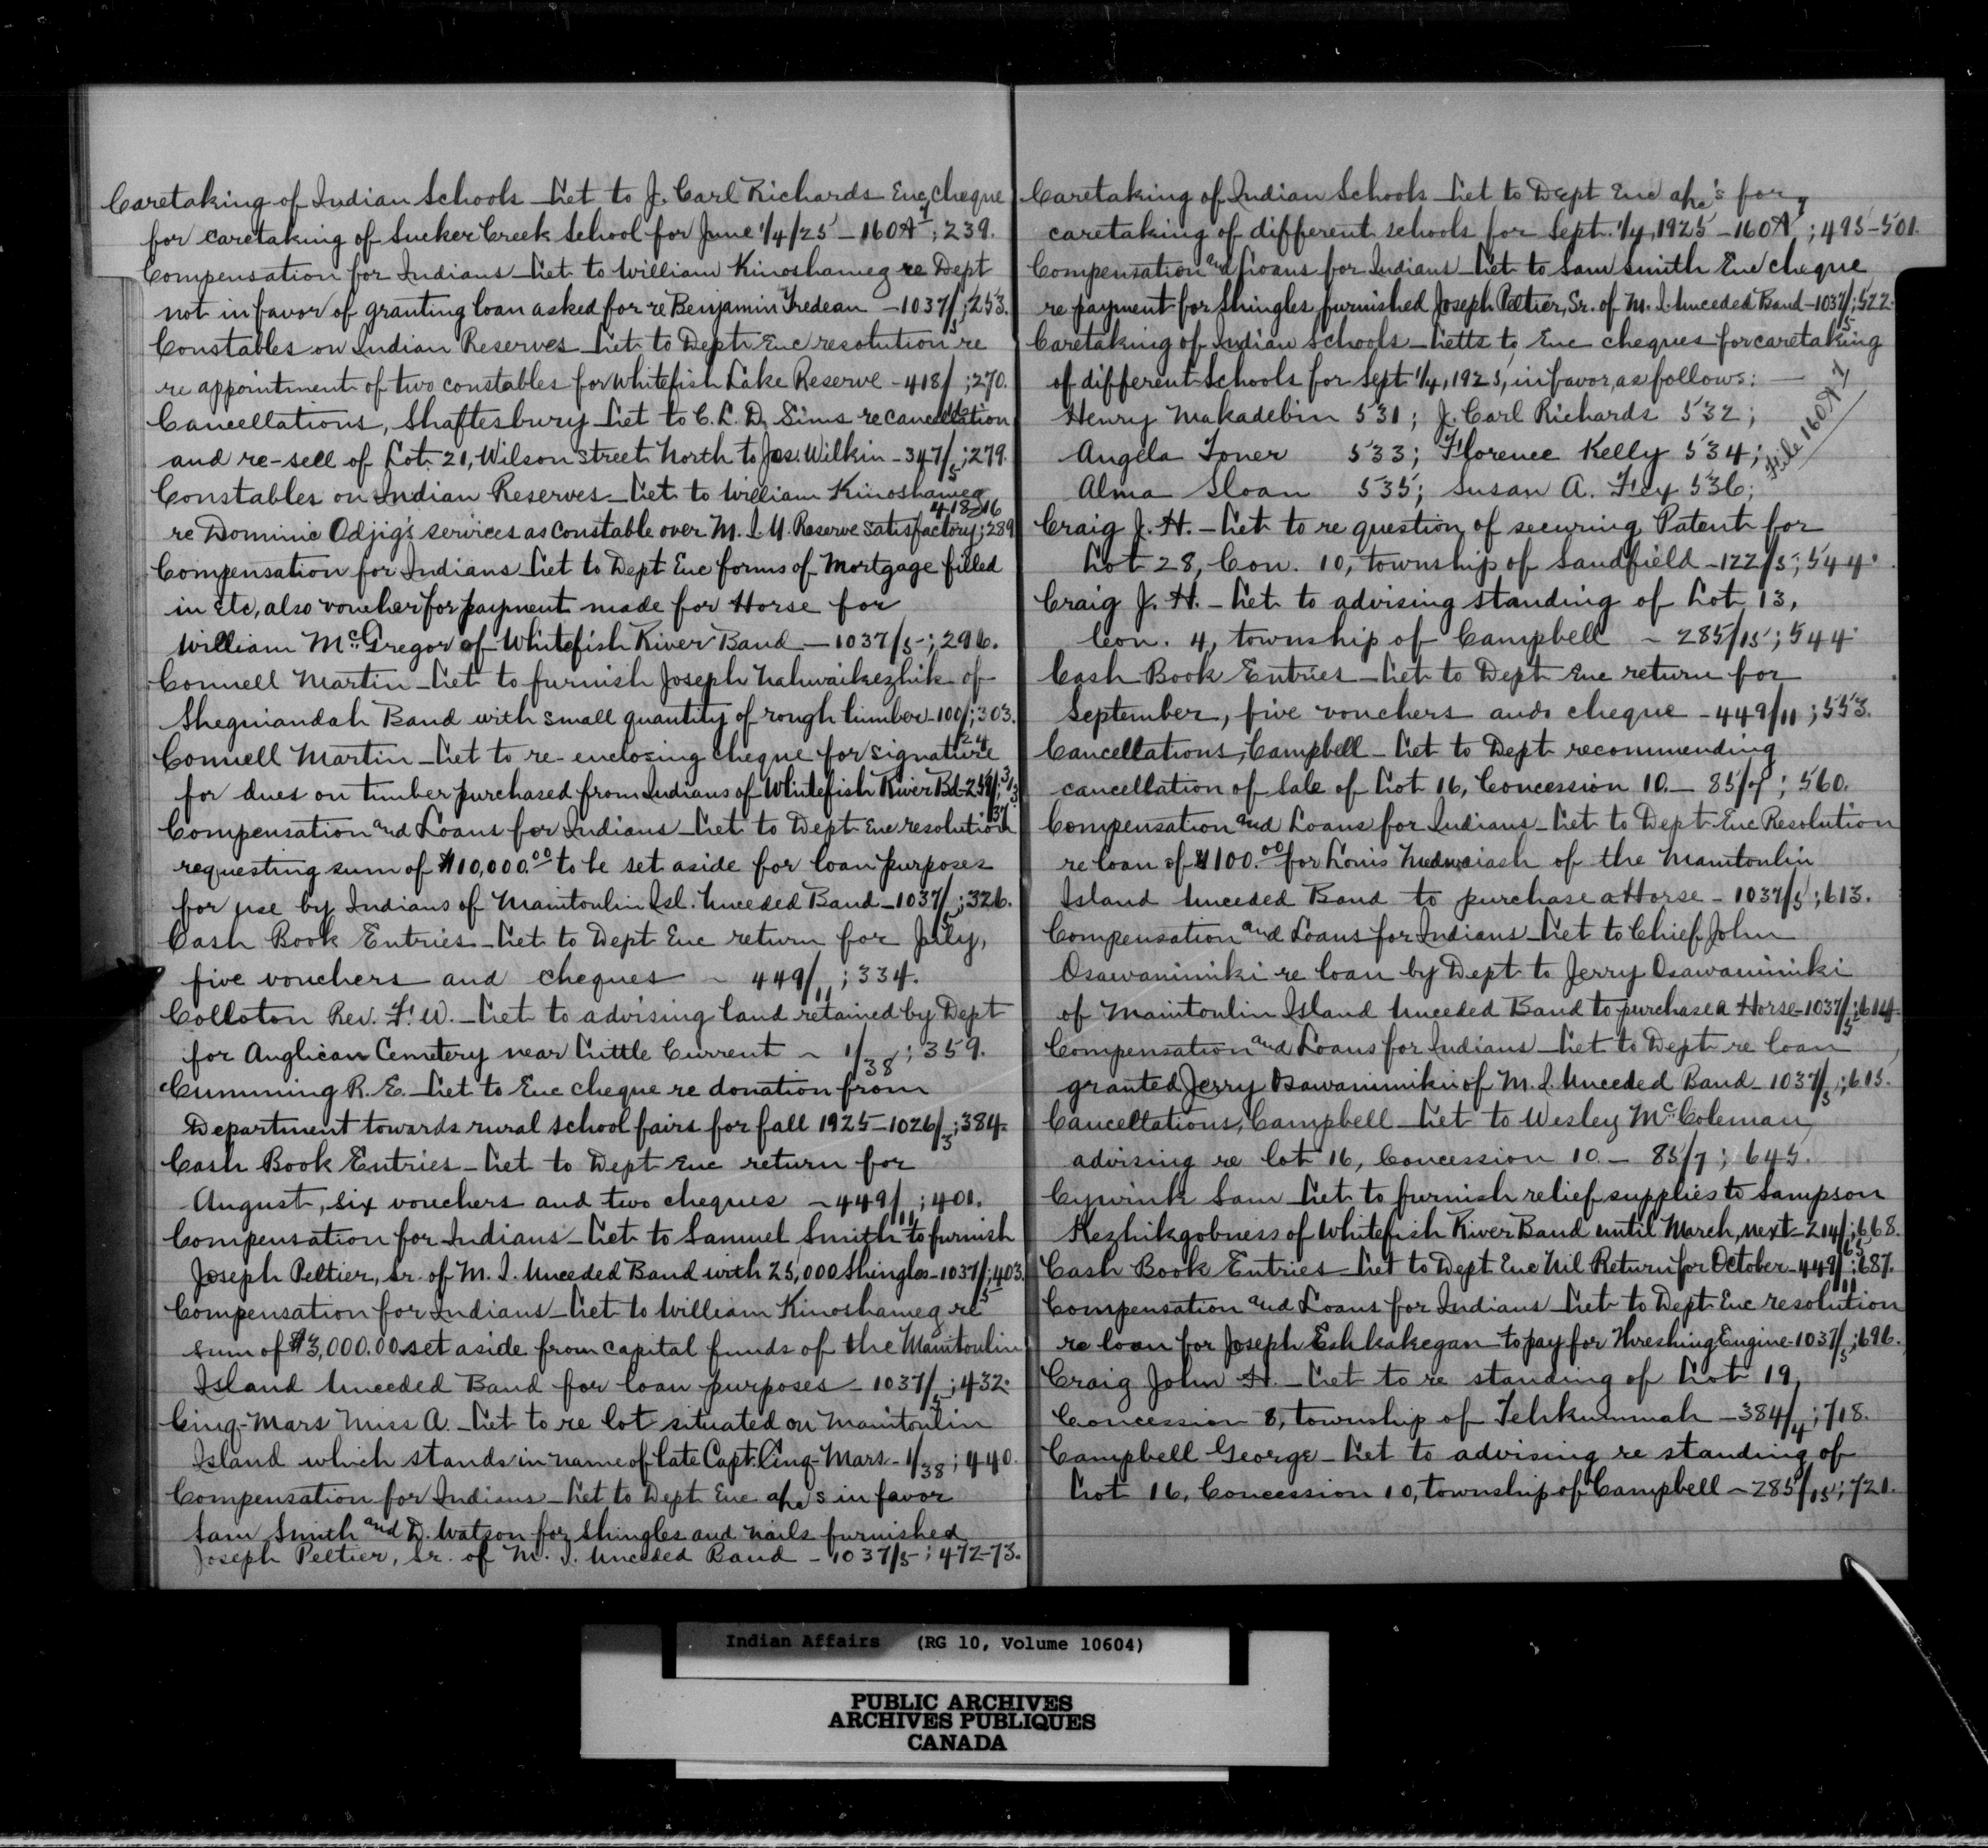 Caretaking of Indian Schools - Let to J. Carl Richards Enc cheque
for caretaking of Sucker Creek School for June 1/4/25 - 160A/7; 239.
Compensation for Indians - Let to William Kinoshameg re Dept
not in favor of granting loan asked for re Benjamin Fredean - 1037/5; 253.
Constables on Indian Reserves - Let to Dept Enc resolution re
re appointment of two constables for Whitefish Lake Reserve - 418/16; 270.
Cancellations, Shaftesbury - Let to C. L. D. Sims re cancellation
and re-sell of Lot 21, Wilson Street North to Jas. Wilkin - 347/5; 279.
Constables on Indian Reserves - Let to William Kinoshameg
re Dominic Odjig's services as constable over M. I. U. Reserve satisfactory; 418/16 289
Compensation for Indians - Let to Dept Enc forms of Mortgage filled
in etc, also voucher for payment made for Horse for
William McGregor of Whitefish River Band - 1037/5; 296.
Connell Martin - Let to furnish Joseph Nahwaikezhik of
Sheguiandah Band with small quantity of rough lumber - 100/24; 303.
Connell Martin - Let to re-enclosing cheque for signature
for dues on timber purchased from Indians of Whitefish River Bd - 254/37; 313
Compensation and Loans for Indians - Let to Dept Enc resolution
requesting sum of $10,000.00 to be set aside for loan purposes
for use by Indians of Manitoulin Isl. Unceded Band - 1037/5; 326.
Cash Book Entries - Let to Dept Enc return for July,
five vouchers and cheques - 449/11; 334.
Colloton Rev. F. W. - Let to advising land retained by Dept
for Anglican Cemetery near Little Current - 1/38; 359.
Cumming R. E. - Let to Enc cheque re donation from
Department towards rural school fairs for fall 1925 - 1026/3; 384.
Cash Book Entries - Let to Dept Enc return for
August, six vouchers and two cheques - 449/11; 401.
Compensation for Indians - Let to Samuel Smith to furnish
Joseph Peltier, Sr. of M. I. Unceded Band with 25,000 Shingles - 1037/5; 403.
Compensation for Indians - Let to William Kinoshameg re
sum of $3,000.00 set aside from capital funds of the Manitoulin
Island Unceded Band for loan purposes - 1037/5; 432.
Cinq-Mars Miss A. - Let to re lot situated on Manitoulin
Island which stands in name of late Capt. Cinq-Mars - 1/38; 440.
Compensation for Indians - Let to Dept Enc a/cs in favor
Sam Smith and D. Watson for shingles and nails furnished
Joseph Peltier, Sr. of M. I. Unceded Band - 1037/5; 472-73.
Caretaking of Indian Schools - Let to Dept Enc a/c's for
caretaking of different schools for Sept. 1/4, 1925 - 160A/7; 495-501.
Compensation and Loans for Indians - Let to Sam Smith Enc cheque
re payment for Shingles furnished Joseph Peltier, Sr. of M. I. Unceded Band - 1037/5; 522.
Caretaking of Indian Schools - Letts to Enc cheques for caretaking
of different Schools for Sept 1/4, 1925, in favor, as follows: -
Henry Makadebin 531; J. Carl Richards 532;
Angela Toner 533; Florence Kelly 534;
Alma Sloan 535; Susan A. Fley 536;
File 160A/7
Craig J. H. - Let to re question of securing Patent for
Lot 28, Con. 10, township of Sandfield - 122/5; 544.
Craig J. H. - Let to advising standing of Lot 13,
Con. 4, township of Campbell - 285/15; 544.
Cash Book Entries - Let to Dept Enc return for
September, five vouchers and cheque - 449/11; 553.
Cancellations, Campbell - Let to Dept recommending
cancellation of Sale of Lot 16, Concession 10. - 85/7; 560.
Compensation and Loans for Indians - Let to Dept Enc Resolution
re loan of $100.00 for Louis of the Manitoulin
Island Unceded Band to purchase a Horse - 1037/5; 613.
Compensation and Loans for Indians - Let to Chief John
Osawanimiki re loan by Dept to Jerry Osawanimiki
of Manitoulin Island Unceded Band to purchase a Horse - 1037/5; 614.
Compensation and Loans for Indians - Let to Dept re loan
granted Jerry Osawanimiki of M. I. Unceded Band - 1037/5; 615.
Cancellations, Campbell - Let to Wesley McColeman
advising re lot 16, Concession 10. - 85/7; 645.
Cywink Sam - Let to furnish relief supplies to Sampson
Kezhikgobness of Whitefish River Band until March, next - 214/; 668.
Cash Book Entries - Let to Dept Enc Nil Return for October - 449/11; 687.
Compensation and Loans for Indians - Let to Dept Enc resolution
re loan for Joseph Eshkakegan to pay for Threshing Engine - 1037/5; 696.
Craig John H. - Let to re standing of Lot 19,
Concession 8, township of Tehkummah - 384/4; 718.
Campbell George - Let to advising re standing of
Lot 16, Concession 10, township of Campbell - 285/15; 721.
Indian Affairs (RG 10, Volume 10604)
PUBLIC ARCHIVES
ARCHIVES PUBLIQUES
CANADA